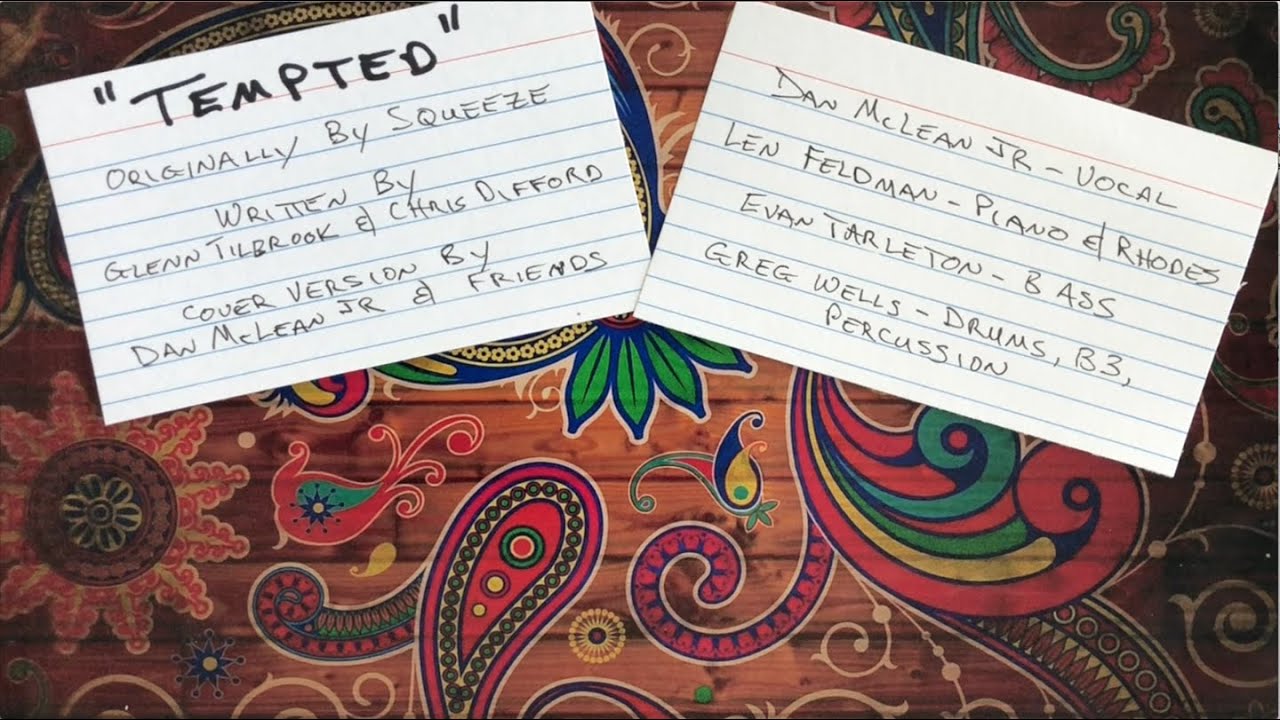 "TEMPTED"
ORIGINALLY BY SQUEEZE
WRITTEN BY
GLENN TILBROOK & CHRIS DIFFORD
COVER VERSION BY
DAN MCLEAN JR & FRIENDS
DAN MCLEAN JR - VOCAL
LEN FELDMAN - PIANO & RHODES
EVAN TARLETON - BASS
GREG WELLS - DRUMS, B3,
PERCUSSION